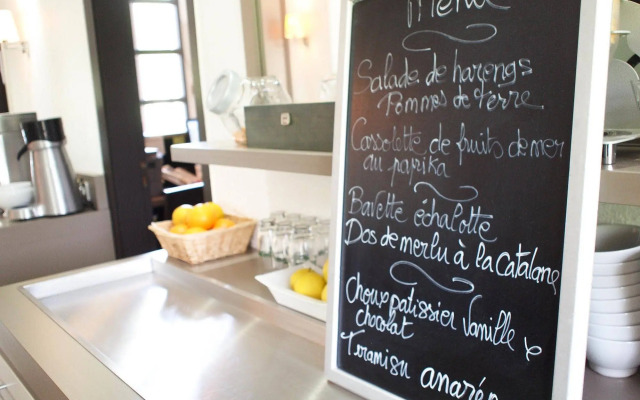 Menu
Salade de harengs
Pommes de terre
Cassolette de fruits de mer
au paprika
Bavette échalotte
Dos de merlu à la catalane
Choux patissier Vanille
chocolat
Tiramisu